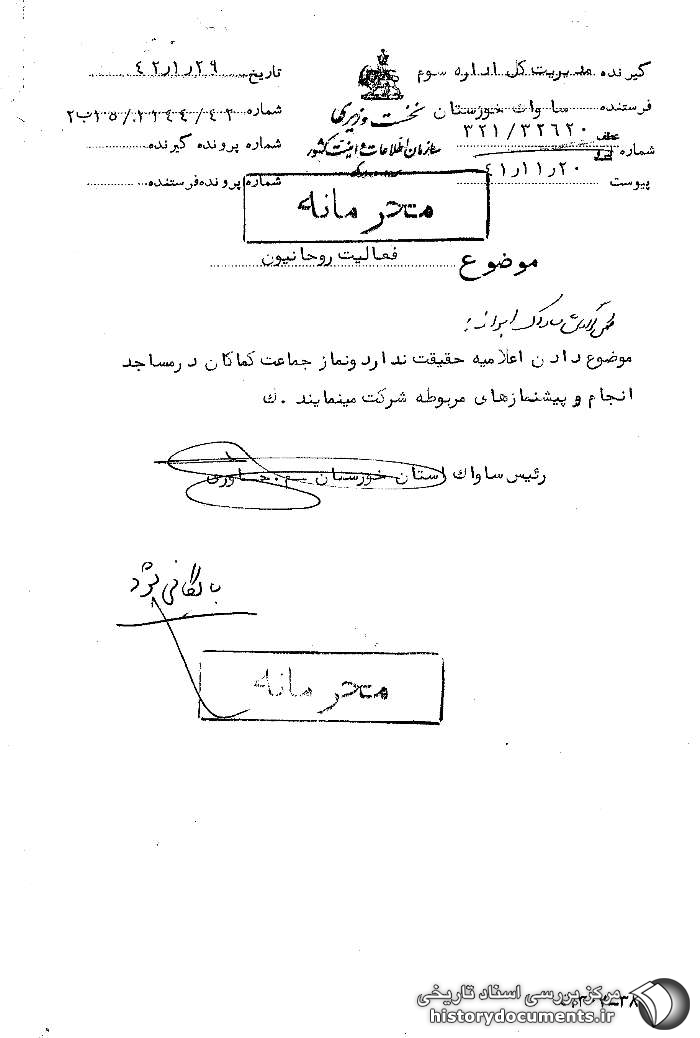 گیرنده مدیریت کل اداره سوم
فرستنده ساواك خوزستان
عطف
شماره ۳۲۱/۳۲۶۲۰
۴۱/۱۱/۲۰
پیوست
نخست وزیری
سازمان اطلاعات و امنیت کشور
تاریخ ۴۲/۱/۲۹
شماره
شماره پرونده گیرنده
شماره پرونده فرستنده
متحرمانه
موضوع فعالیت روحانیون
موضوع دادن اعلامیه حقیقت ندارد ونماز جماعت کماکان درمساجد
انجام و پیشنمازهای مربوطه شرکت مینمایند . ك
رئیس ساواك استان خوزستان
متحرمانه
مرکز بررسی اسناد تاریخی
historydocuments.ir